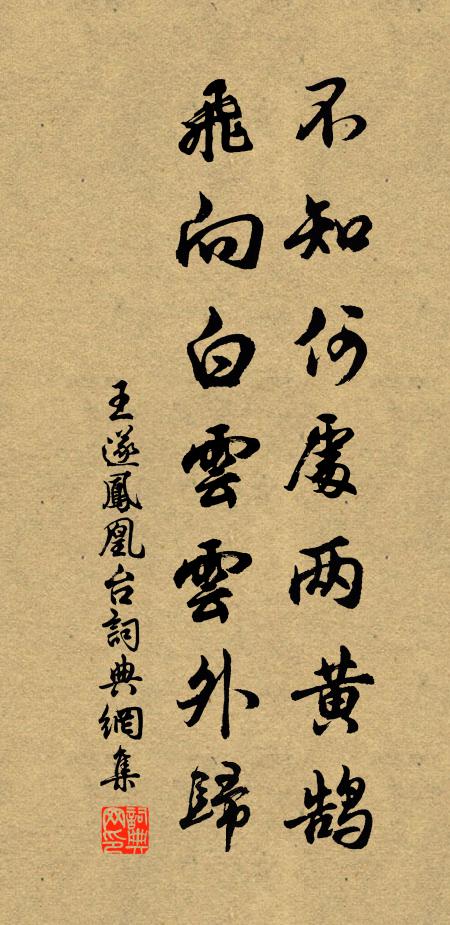 不知何處两黄鹄
飛向白雲雲外歸
王遂鳳凰台詞典網集
詞典网印